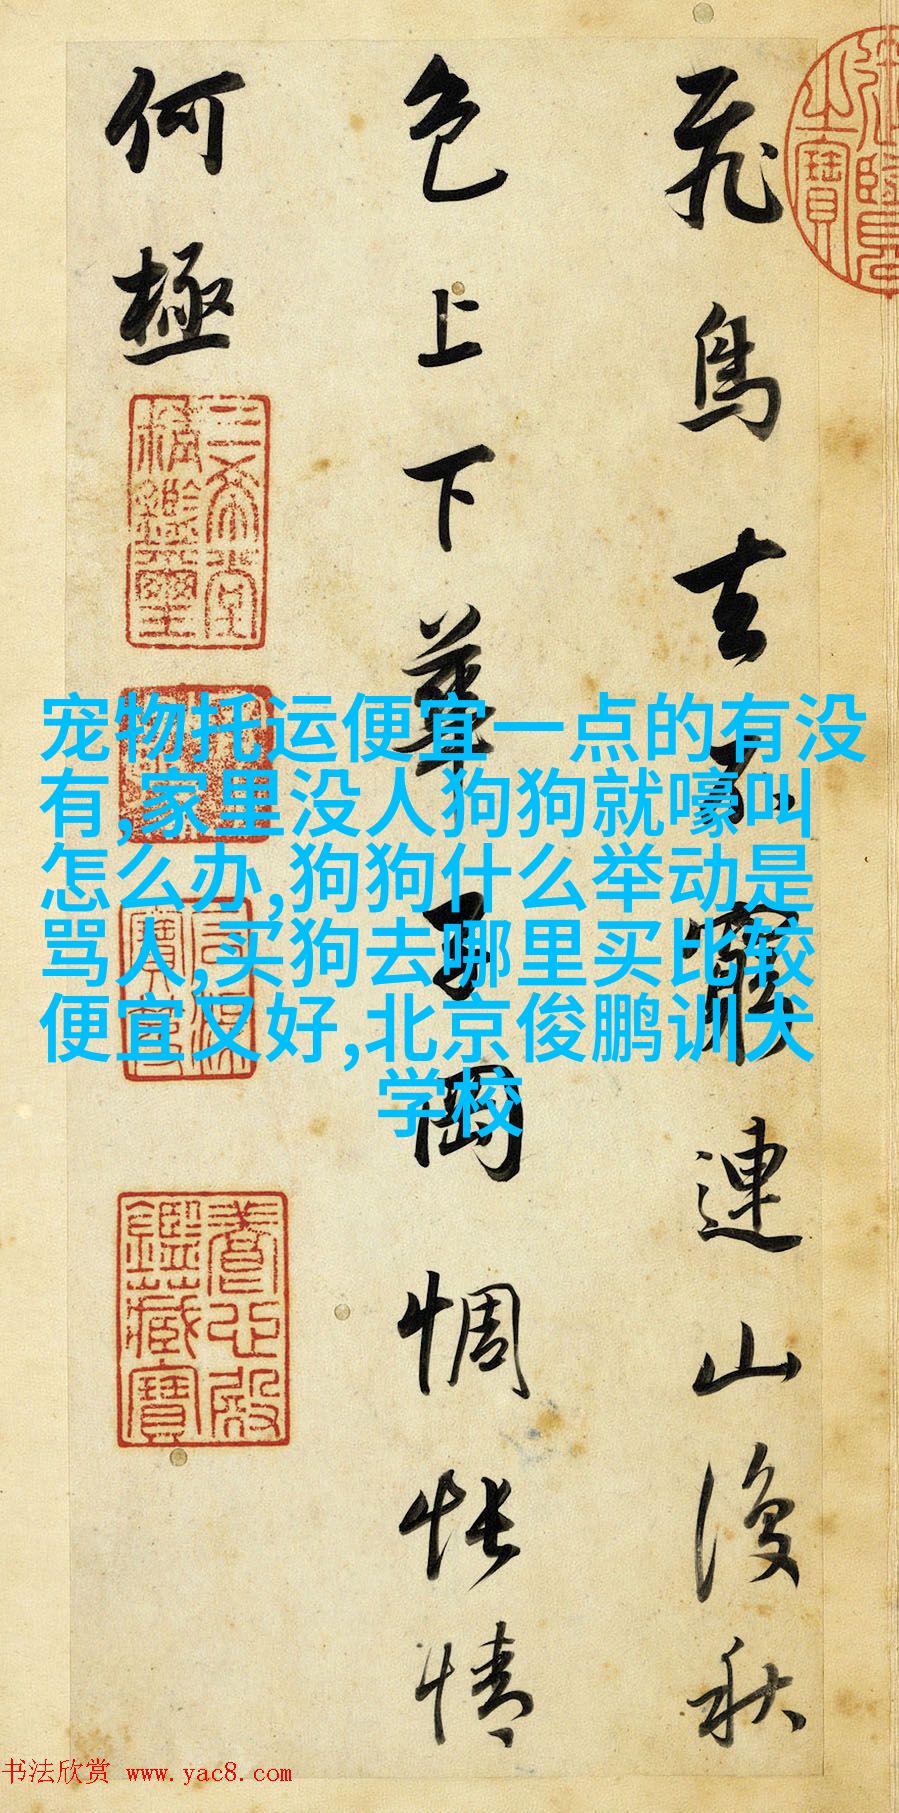 飛鳥去不窮連山復秋
色上下華子岡惆悵情
何極
三希堂精鑑璽
養心殿鑑藏寶
宠物托运便宜一点的有没
有,家里没人狗狗就嚎叫
怎么办,狗狗什么举动是
骂人,买狗去哪里买比较
便宜又好,北京俊鹏训犬
学校
书法欣赏 www.yac8.com